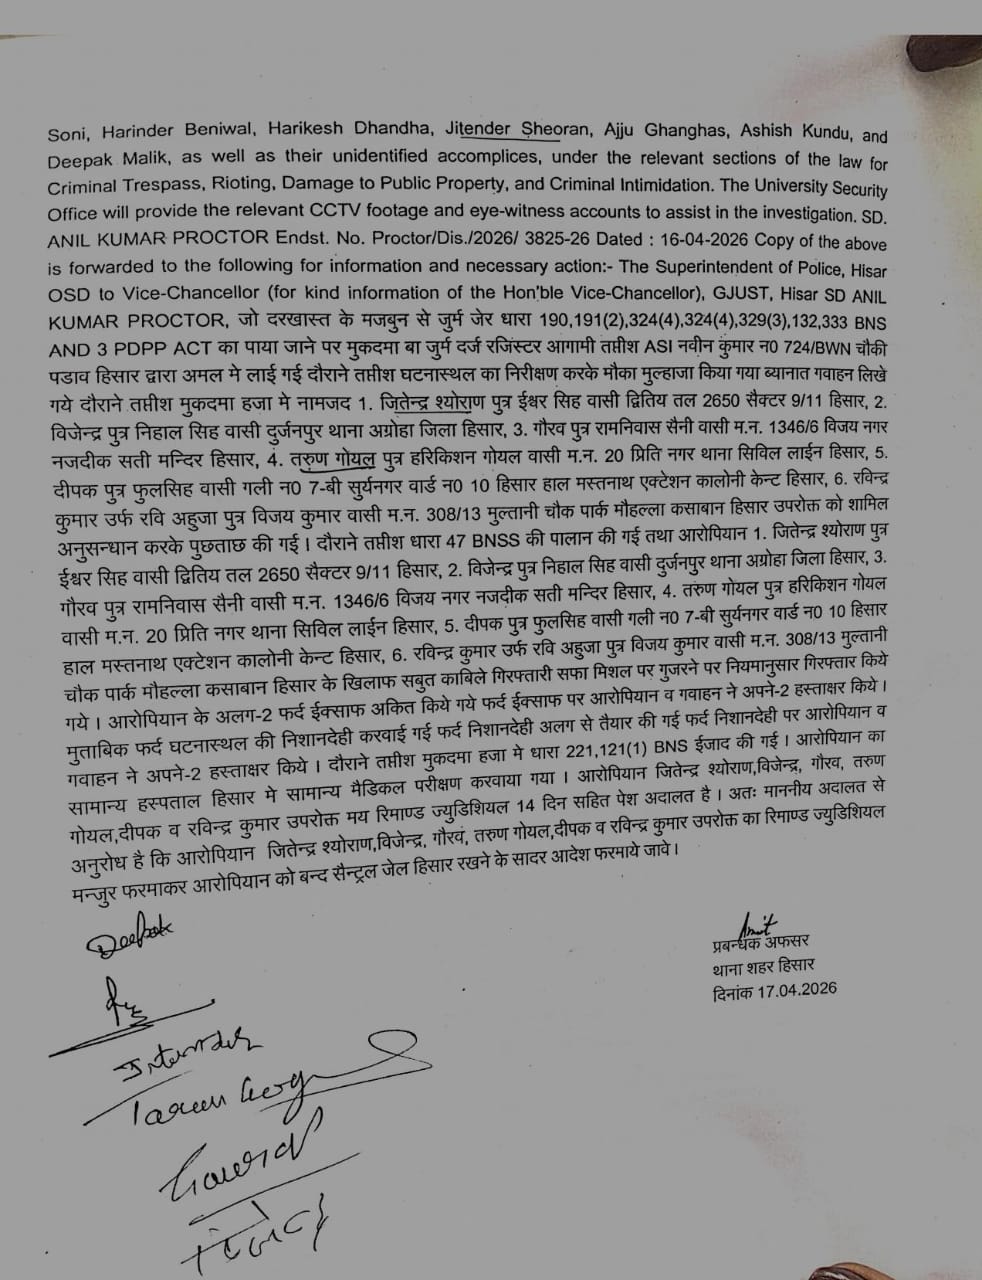 Soni, Harinder Beniwal, Harikesh Dhandha, Jitender Sheoran, Ajju Ghanghas, Ashish Kundu, and
Deepak Malik, as well as their unidentified accomplices, under the relevant sections of the law for
Criminal Trespass, Rioting, Damage to Public Property, and Criminal Intimidation. The University Security
Office will provide the relevant CCTV footage and eye-witness accounts to assist in the investigation. SD.
ANIL KUMAR PROCTOR Endst. No. Proctor/Dis./2026/ 3825-26 Dated : 16-04-2026 Copy of the above
is forwarded to the following for information and necessary action:- The Superintendent of Police, Hisar
OSD to Vice-Chancellor (for kind information of the Hon'ble Vice-Chancellor), GJUST, Hisar SD ANIL
KUMAR PROCTOR, जो दरखास्त के मजबुन से जुर्म जेर धारा 190,191(2),324(4),324(4),329(3),132,333 BNS
AND 3 PDPP ACT का पाया जाने पर मुकदमा बा जुर्म दर्ज रजिस्टर आगामी तफ्तीश ASI नवीन कुमार न0 724/BWN चौकी
पडाव हिसार द्वारा अमल मे लाई गई दौराने तफ्तीश घटनास्थल का निरीक्षण करके मौका मुल्हाजा किया गया ब्यानात गवाहन लिखे
गये दौराने तफ्तीश मुकदमा हजा मे नामजद 1. जितेन्द्र श्योराण पुत्र ईश्वर सिह वासी द्वितिय तल 2650 सैक्टर 9/11 हिसार, 2.
विजेन्द्र पुत्र निहाल सिह वासी दुर्जनपुर थाना अग्रोहा जिला हिसार, 3. गौरव पुत्र रामनिवास सैनी वासी म.न. 1346/6 विजय नगर
नजदीक सती मन्दिर हिसार, 4. तरुण गोयल पुत्र हरिकिशन गोयल वासी म.न. 20 प्रिति नगर थाना सिविल लाईन हिसार, 5.
दीपक पुत्र फुलसिह वासी गली न0 7-बी सुर्यनगर वार्ड न0 10 हिसार हाल मस्तनाथ एक्टेशन कालोनी केन्ट हिसार, 6. रविन्द्र
कुमार उर्फ रवि अहुजा पुत्र विजय कुमार वासी म.न. 308/13 मुल्तानी चौक पार्क मौहल्ला कसाबान हिसार उपरोक्त को शामिल
अनुसन्धान करके पुछताछ की गई। दौराने तफ्तीश धारा 47 BNSS की पालान की गई तथा आरोपियान 1. जितेन्द्र श्योराण पुत्र
ईश्वर सिह वासी द्वितिय तल 2650 सैक्टर 9/11 हिसार, 2. विजेन्द्र पुत्र निहाल सिह वासी दुर्जनपुर थाना अग्रोहा जिला हिसार, 3.
गौरव पुत्र रामनिवास सैनी वासी म.न. 1346/6 विजय नगर नजदीक सती मन्दिर हिसार, 4. तरुण गोयल पुत्र हरिकिशन गोयल
वासी म.न. 20 प्रिति नगर थाना सिविल लाईन हिसार, 5. दीपक पुत्र फुलसिह वासी गली न0 7-बी सुर्यनगर वार्ड न0 10 हिसार
हाल मस्तनाथ एक्टेशन कालोनी केन्ट हिसार, 6. रविन्द्र कुमार उर्फ रवि अहुजा पुत्र विजय कुमार वासी म.न. 308/13 मुल्तानी
चौक पार्क मौहल्ला कसाबान हिसार के खिलाफ सबुत काबिले गिरफ्तारी सफा मिशल पर गुजरने पर नियमानुसार गिरफ्तार किये
गये। आरोपियान के अलग-2 फर्द ईक्साफ अकित किये गये फर्द ईक्साफ पर आरोपियान व गवाहन ने अपने-2 हस्ताक्षर किये।
मुताबिक फर्द घटनास्थल की निशानदेही करवाई गई फर्द निशानदेही अलग से तैयार की गई फर्द निशानदेही पर आरोपियान व
गवाहन ने अपने-2 हस्ताक्षर किये। दौराने तफ्तीश मुकदमा हजा मे धारा 221,121(1) BNS ईजाद की गई। आरोपियान का
सामान्य हस्पताल हिसार मे सामान्य मैडिकल परीक्षण करवाया गया। आरोपियान जितेन्द्र श्योराण,विजेन्द्र, गौरव, तरुण
गोयल,दीपक व रविन्द्र कुमार उपरोक्त मय रिमाण्ड ज्युडिशियल 14 दिन सहित पेश अदालत है। अतः माननीय अदालत से
अनुरोध है कि आरोपियान जितेन्द्र श्योराण,विजेन्द्र, गौरव, तरुण गोयल,दीपक व रविन्द्र कुमार उपरोक्त का रिमाण्ड ज्युडिशियल
मन्जुर फरमाकर आरोपियान को बन्द सैन्ट्रल जेल हिसार रखने के सादर आदेश फरमाये जावे।
Deepak
Amit
प्रबन्धक अफसर
थाना शहर हिसार
दिनांक 17.04.2026
Jitender
Tarun Goyal
Gaurav